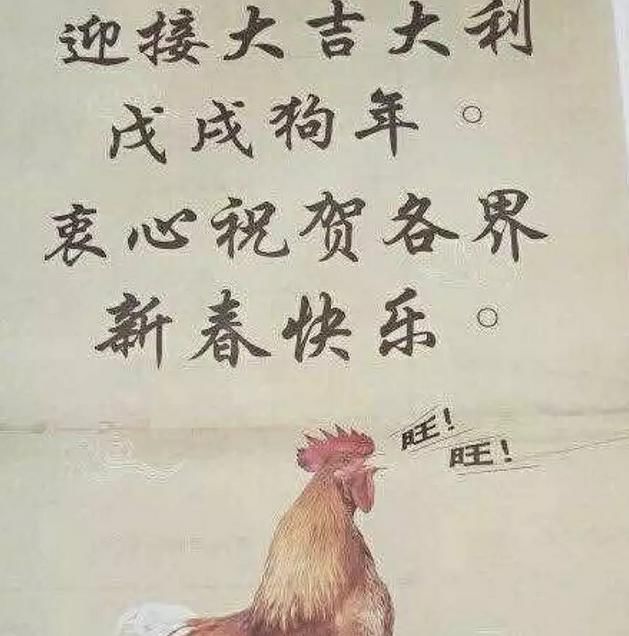 迎接大吉大利
戊戌狗年。
衷心祝贺各界
新春快乐。
旺!
旺!